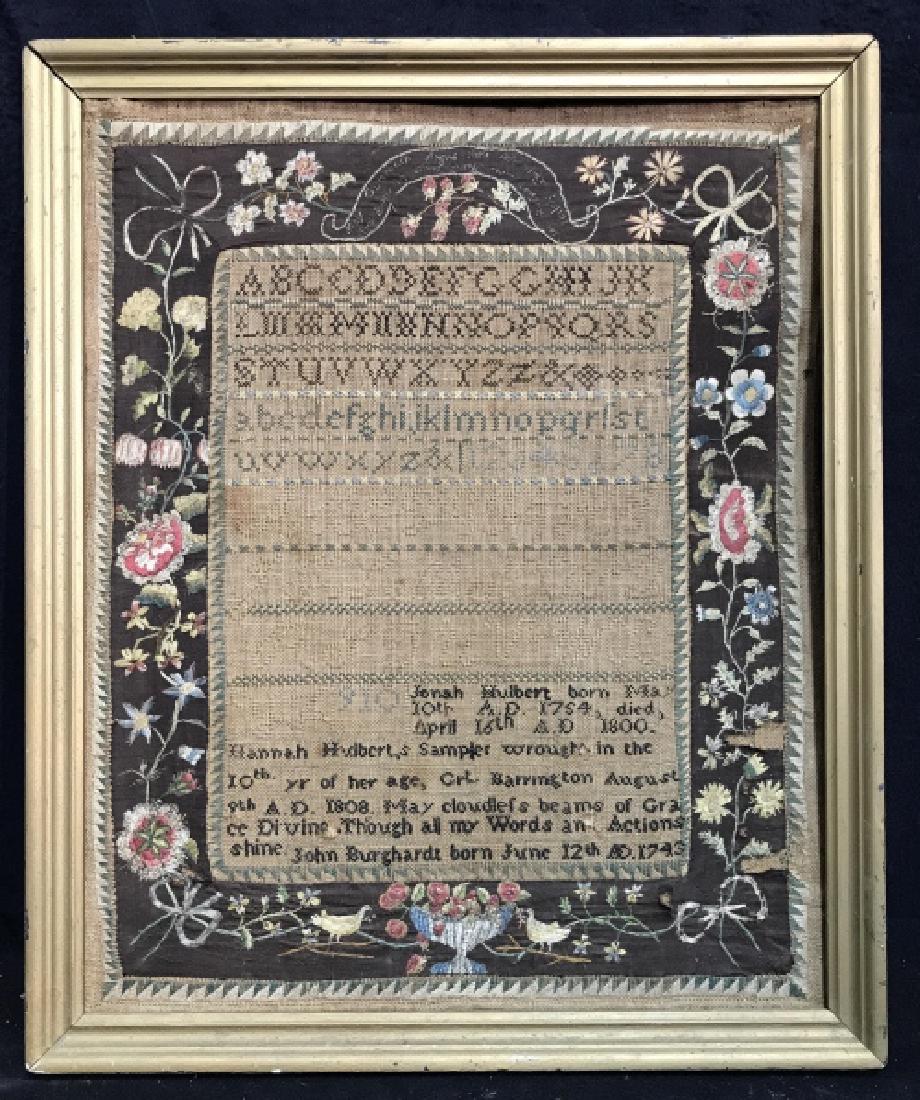 A B C C D D E F G G H I J K
L M N N O P Q R S
S T U V W X Y Z Z &
a b c d e f g h i j k l m n o p q r ſ s t
u v w x y z &
Jonah Hulbert born May
10th A.D. 1754, died,
April 16th A.D 1800.
Hannah Hulbert,s Sampler wrought in the
10th yr of her age, Grt. Barrington August
9th A.D. 1808. May cloudleſs beams of Gra
ce Divine Though all my Words and Actions
shine. John Burghardt born June 12th AD.